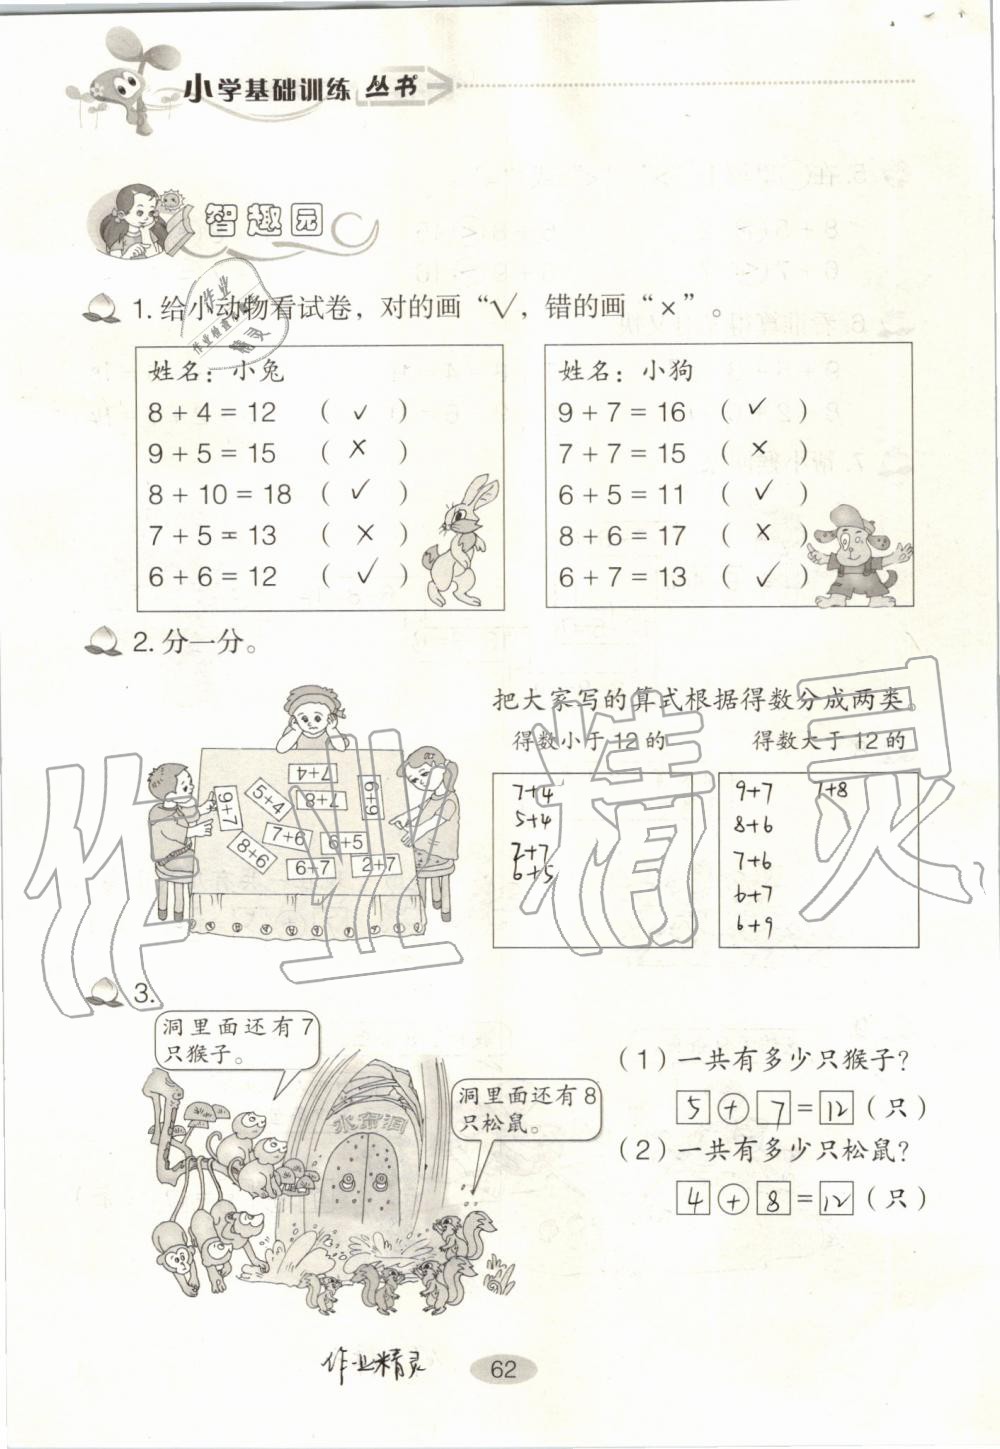 小学基础训练 丛书
智趣园
1. 给小动物看试卷，对的画“√，错的画“×”。
姓名：小兔
8 + 4 = 12 ( ✓ )
9 + 5 = 15 ( × )
8 + 10 = 18 ( ✓ )
7 + 5 = 13 ( × )
6 + 6 = 12 ( ✓ )
姓名：小狗
9 + 7 = 16 ( ✓ )
7 + 7 = 15 ( × )
6 + 5 = 11 ( ✓ )
8 + 6 = 17 ( × )
6 + 7 = 13 ( ✓ )
2. 分一分。
7+4
5+4
7+8
6+9
9+7
7+6
6+5
8+6
6+7
2+7
把大家写的算式根据得数分成两类。
得数小于 12 的
7+4
5+4
2+7
6+5
得数大于 12 的
9+7 7+8
8+6
7+6
6+7
6+9
3.
洞里面还有 7
只猴子。
水帘洞
洞里面还有 8
只松鼠。
（1）一共有多少只猴子？
5 + 7 = 12（只）
（2）一共有多少只松鼠？
4 + 8 = 12（只）
作业精灵
62
作业精灵